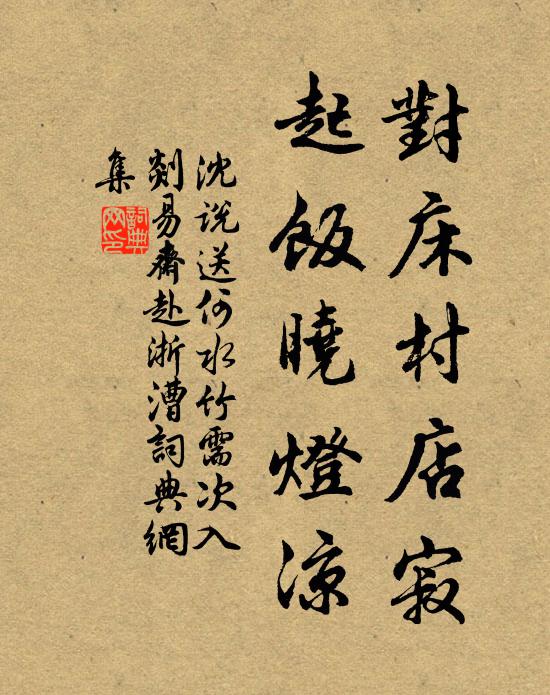 對床村店寂
起飯曉燈涼
沈說送何水竹需次入
剡易齋赴浙漕詞典網
集
詞典网印